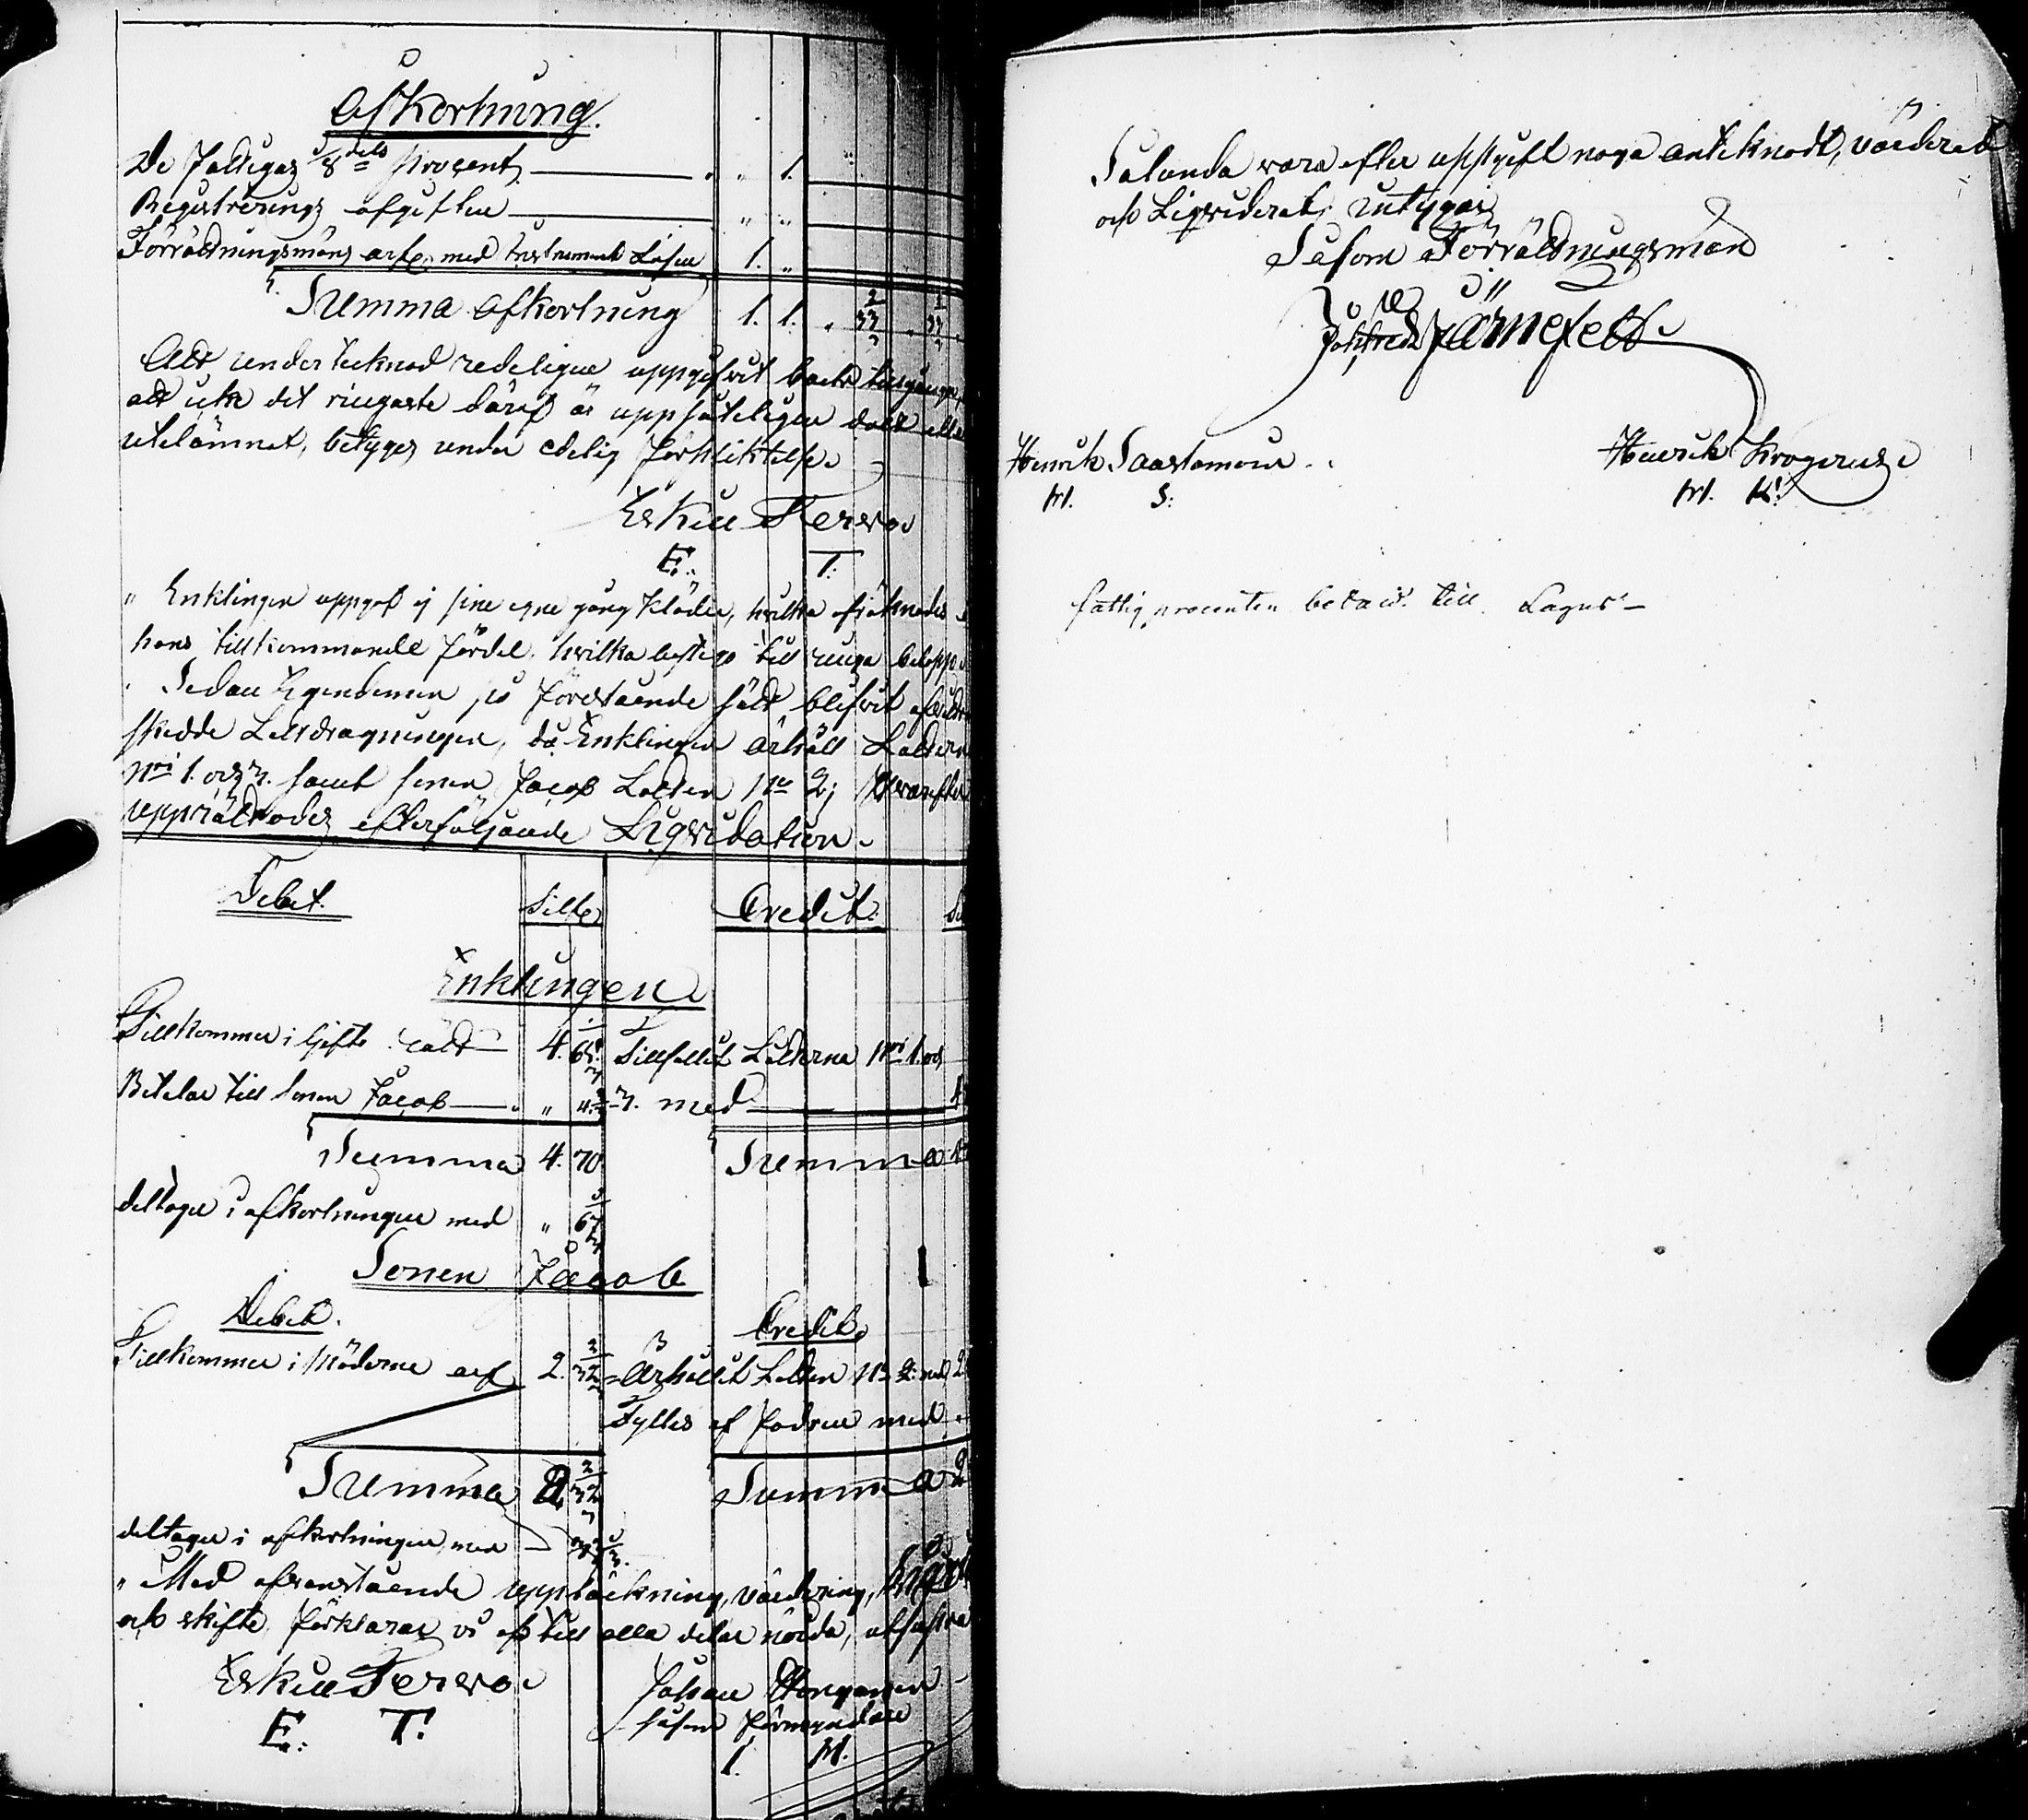 Afkortning.
De fattigas 1/8 dels procent " 1.
Registrerings afgiften " "
Förrättningsmäns arfv. med Instrument Lösen 1. "
Summa Afkortning 1. 1.
Att undertecknad redeligen uppgifvit boets tillgångar,
att icke det ringaste däraf är uppsåteligen dolt eller
utelämnat, betyges under edelig förpliktelse.
Eskill Tervo
E. T.
" Enklingen uppgaf ej sine egne gång kläder, hvilka afräknades
hans tillkommande fördel, hvilka bestego till ringa belopp
Sedan Egendomen på förestående sätt blifvit
skedde Lottdragningen, då Enklingen ärhöll Lotterna
Nri 1. och 3. samt sonen Jacob Lotten No 2; hvarefter
upprättades efterföljande Liqvidation.
Debet. Silfr Credit.
Enklingen
Tillkommer i Gifto rätt 4. Tillfallit Lotterna Nri 1. och
Betalar till sonen Jacob " 4 3. med
Summa 4. 70. Summa
deltager i afkortningen med " 67
Sonen Jacob
Debet. Credit.
Tillkommer i Möderne arf 2. Ärhållit Lotten No 2. med 2
Fylles af fadren med
Summa 2 Summa 2
deltager i afkortningen med
" Med ofvanstående uppteckning, värdering,
och skifte, förklarar vi oss till alla delar nöjda,
Eskill Tervo Johan
E. T. såsom förmyndare
I. M.
Sålunda vara efter uppgift noga antiknadt, värderat
och Liqviderat, intygar
Såsom Förrättningsman
Järnefelt
Henrik Saastamoin Henrik Krogerus
M. S: M. K:
fattig procenten betalt till Lagus